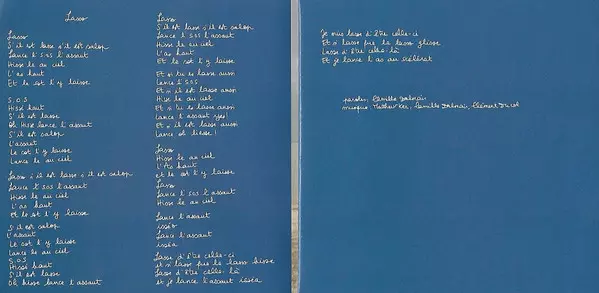 Lasso
Lasso
S'il est lasse s'il est salop
Lance l'sos l'assaut
Hisse le au ciel
L'as haut
Et le sot l'y laisse
S.O.S
Hissé haut
S'il est lasse
Oh hisse lance l'assaut
S'il est salop
L'assaut
Le sot l'y laisse
Lance le au ciel
Lasso s'il est lasse s'il est salop
Lance l'sos l'assaut
Hisse le au ciel
L'as haut
Et le sot l'y laisse
S'il est salop
L'assaut
Le sot l'y laisse
Lance le au ciel
S.O.S
Hissé haut
S'il est lasse
Oh hisse lance l'assaut
Lasso
S'il est lasse s'il est salop
Lance l'sos l'assaut
Hisse le au ciel
L'as haut
Et le sot l'y laisse
Et si tu es lasse aussi
Lance l'S.O.S
Et s'il est lasse aussi
Hisse le au ciel
Et si tu es lasse aussi
Lance l'assaut
Et s'il est lasse aussi
Lance oh
Lasso
Hisse le au ciel
L'As haut
et le sot l'y laisse
Lasso
Lance l'sos l'assaut
Hisse le au ciel
Lance l'assaut
isséo
Lance l'assaut
isséa
Lasse d'être celle-ci
et si lasse fuis le lasso hisse
Lasse d'être celle-là
et je lance l'assaut isséa
Je suis lasse d'être celle-ci
Et si lasse fuis le lasso glisse
Lasse d'être celle-là
Et je lance l'as au scélérat
paroles: Camille Dalmais
musique: Matthew Ker, Camille Dalmais, Clément Ducol